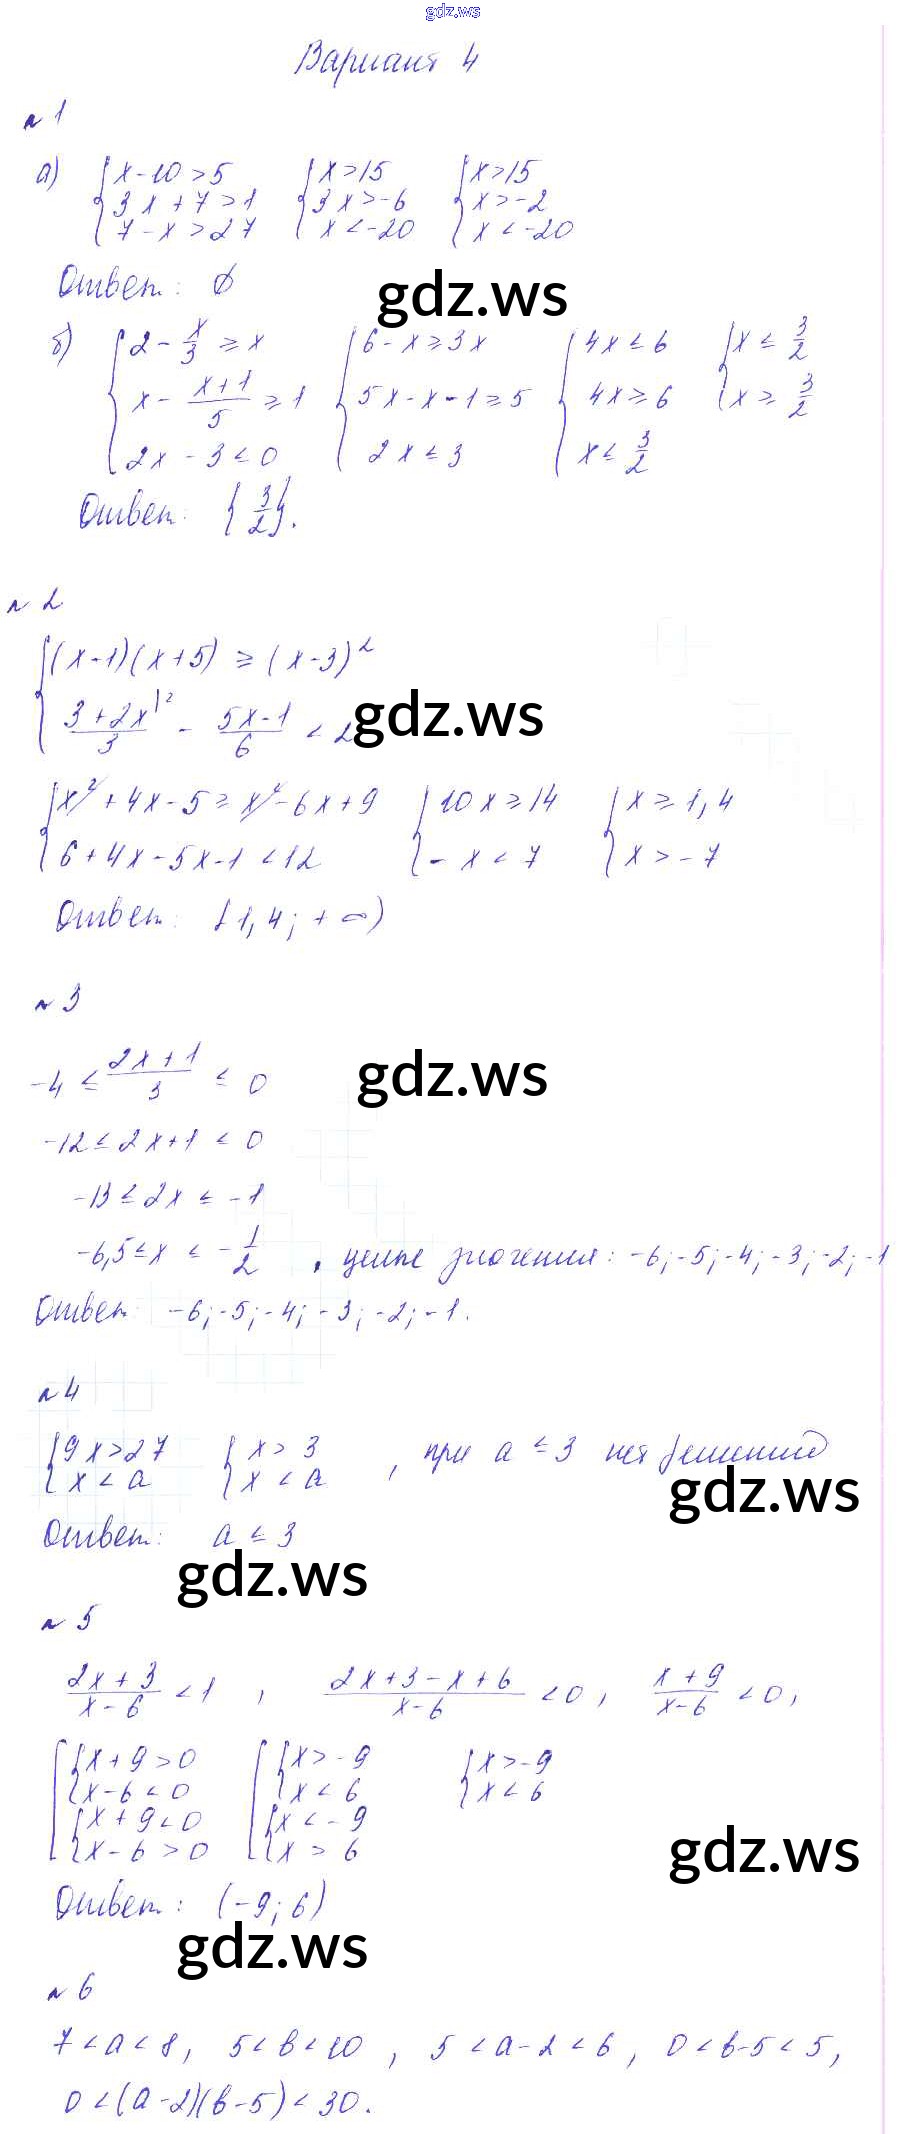 gdz.ws
Вариант 4
№ 1
а) { x-10>5 { x>15 { x>15
3x+7>1 3x>-6 x>-2
7-x>27 x<-20 x<-20
Ответ: ∅
gdz.ws
б) { 2 - x/3 ≥ x { 6-x≥3x { 4x≤6 { x ≤ 3/2
x - (x+1)/5 ≥ 1 5x-x-1≥5 4x≥6 x ≥ 3/2
2x-3≤0 2x≤3 x≤ 3/2
Ответ: {3/2}.
№ 2
{ (x-1)(x+5) ≥ (x-3)²
(3+2x)/3 |² - (5x-1)/6 < 2
gdz.ws
{ x²+4x-5≥x²-6x+9 { 10x≥14 { x≥1,4
6+4x-5x-1<12 -x<7 x>-7
Ответ: [1,4; +∞)
№ 3
-4 ≤ (2x+1)/3 ≤ 0
gdz.ws
-12≤2x+1≤0
-13≤2x≤-1
-6,5≤x≤-1/2, целые значения: -6;-5;-4;-3;-2;-1
Ответ: -6;-5;-4;-3;-2;-1.
№ 4
{ 9x>27 { x>3 , при a≤3 нет решений
x<a x<a
gdz.ws
Ответ: a≤3
gdz.ws
№ 5
(2x+3)/(x-6) <1 , (2x+3-x+6)/(x-6) <0, (x+9)/(x-6) <0,
[ { x+9>0 [ { x>-9 { x>-9
x-6<0 x<6 x<6
{ x+9<0 { x<-9
x-6>0 x>6
gdz.ws
Ответ: (-9; 6)
gdz.ws
№ 6
7<a<8, 5<b<10, 5<a-2<6, 0<b-5<5,
0<(a-2)(b-5)<30.